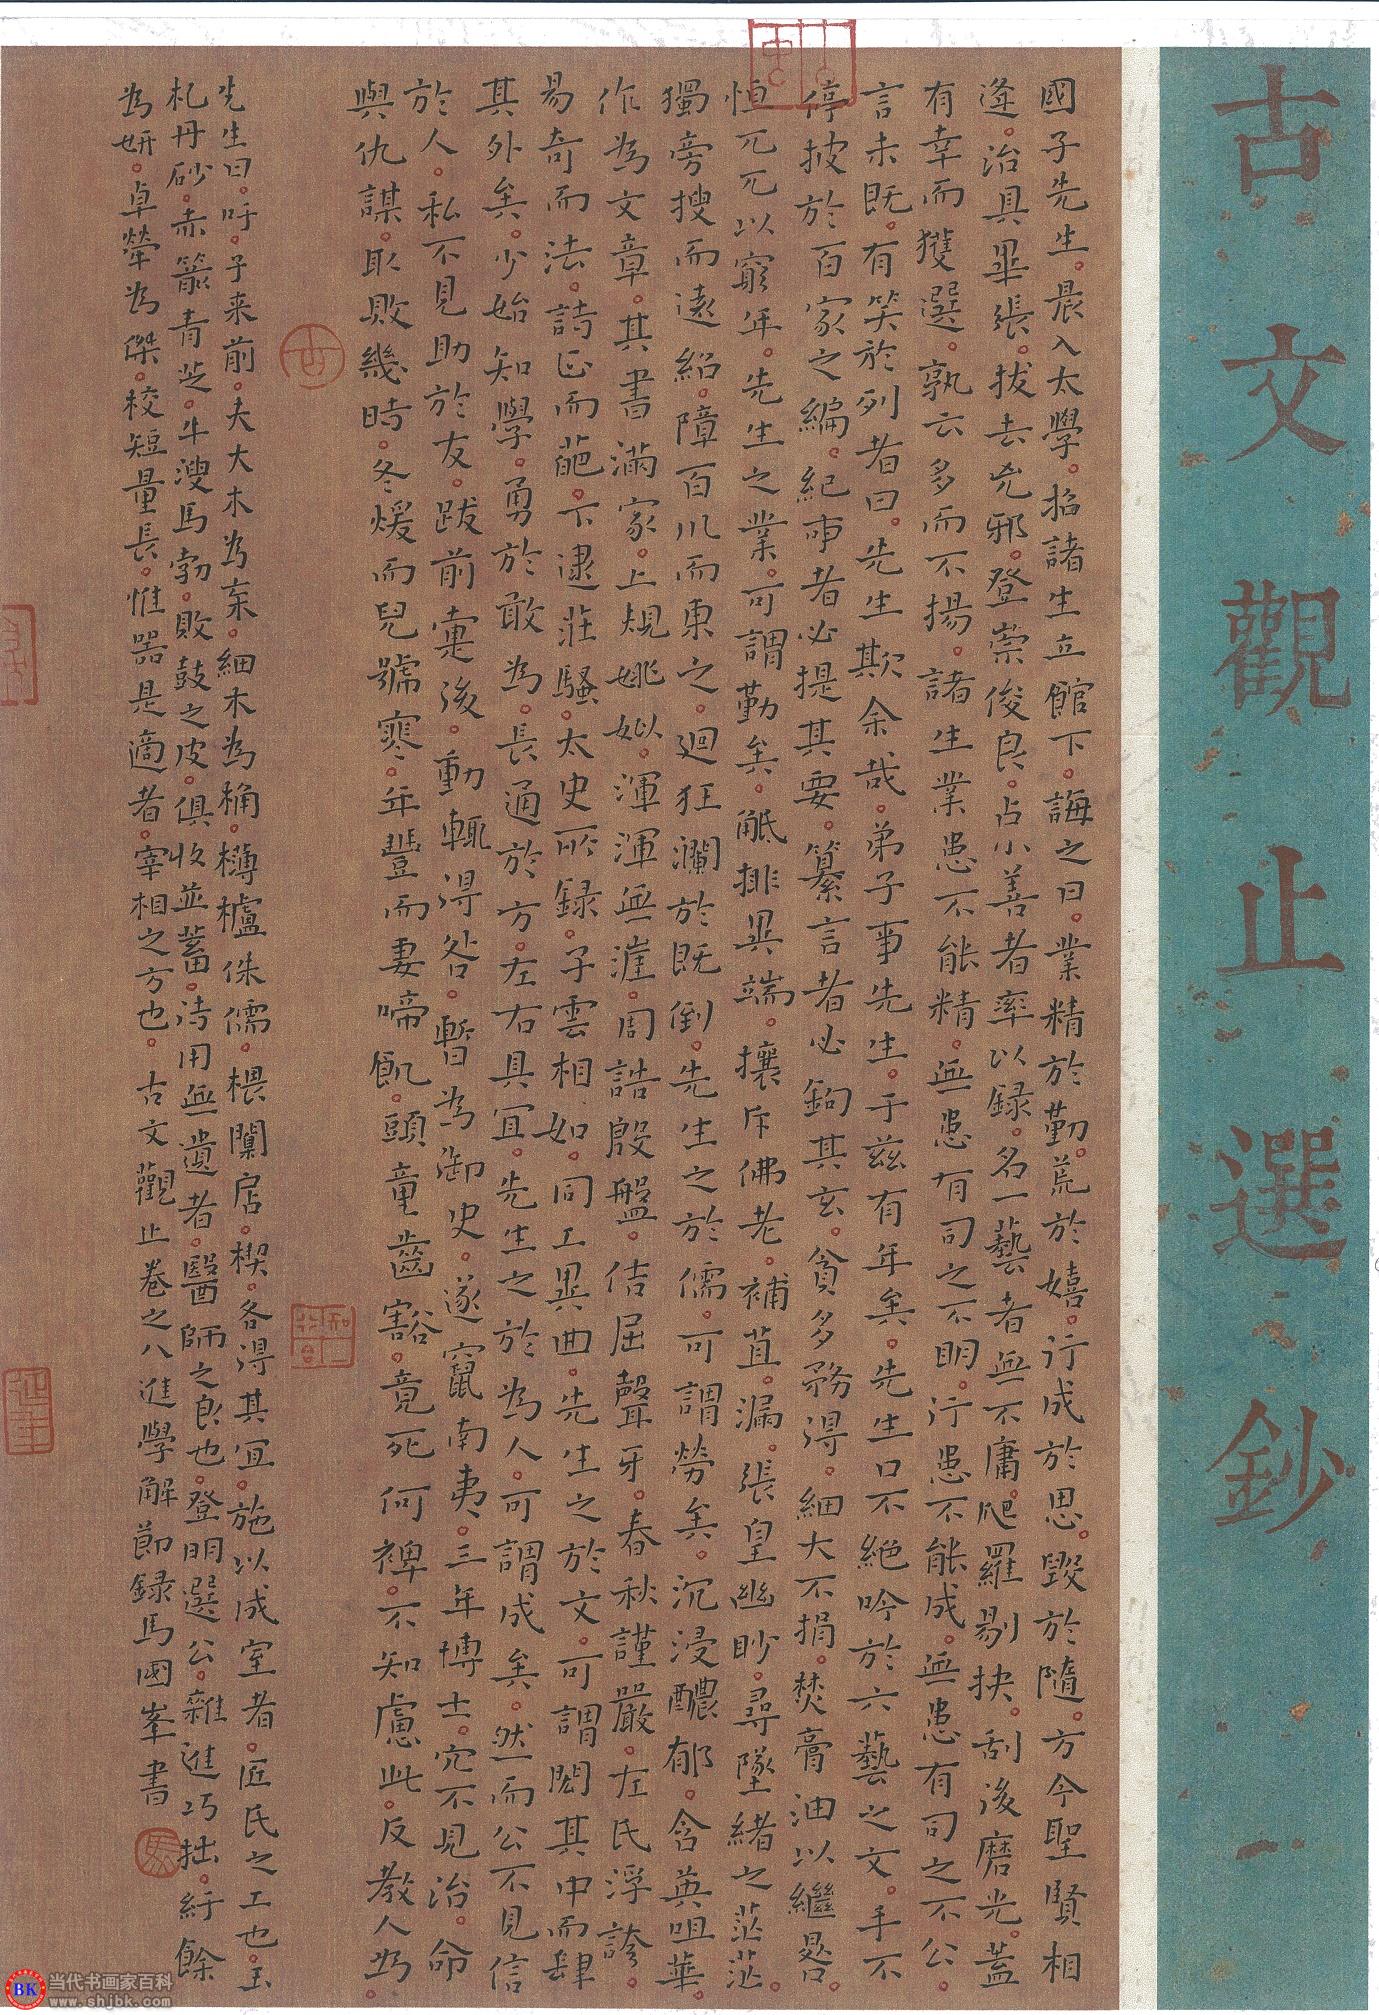 古文觀止選鈔 一
國子先生。晨入太學。招諸生立館下。誨之曰。業精於勤。荒於嬉。行成於思。毀於隨。方今聖賢相
逢。治具畢張。拔去兇邪。登崇俊良。占小善者率以錄。名一藝者無不庸。爬羅剔抉。刮後磨光。蓋
有幸而獲選。孰云多而不揚。諸生業患不能精。無患有司之不明。行患不能成。無患有司之不公。
言未既。有笑於列者曰。先生欺余哉。弟子事先生。于茲有年矣。先生口不絕吟於六藝之文。手不
停披於百家之編。紀事者必提其要。纂言者必鉤其玄。貪多務得。細大不捐。焚膏油以繼晷。
恒兀兀以窮年。先生之業。可謂勤矣。觝排異端。攘斥佛老。補苴漏。張皇幽眇。尋墜緒之茫茫。
獨旁搜而遠紹。障百川而東之。迴狂瀾於既倒。先生之於儒。可謂勞矣。沉浸醲郁。含英咀華。
作為文章。其書滿家。上規姚姒。渾渾無涯。周誥殷盤。佶屈聱牙。春秋謹嚴。左氏浮誇。
易奇而法。詩正而葩。下逮莊騷。太史所錄。子雲相如。同工異曲。先生之於文。可謂閎其中而肆
其外矣。少始知學。勇於敢為。長通於方。左右具宜。先生之於為人。可謂成矣。然而公不見信
於人。私不見助於友。跋前疐後。動輒得咎。暫為御史。遂竄南夷。三年博士。冗不見治。命
與仇謀。取敗幾時。冬煖而兒號寒。年豐而妻啼飢。頭童齒豁。竟死何裨。不知慮此。反教人為。
先生曰。吁。子来前。夫大木為杗。細木為桷。欂櫨侏儒。椳闑扂。楔。各得其宜。施以成室者。匠氏之工也。玉
札丹砂。赤箭青芝。牛溲馬勃。敗鼓之皮。俱收並蓄。待用無遺者。醫師之良也。登明選公。雜進巧拙。紆餘
為妍。卓犖為傑。校短量長。惟器是適者。宰相之方也。古文觀止卷之八進學解節錄馬國峯書
BK 当代书画家百科
www.shjbk.com